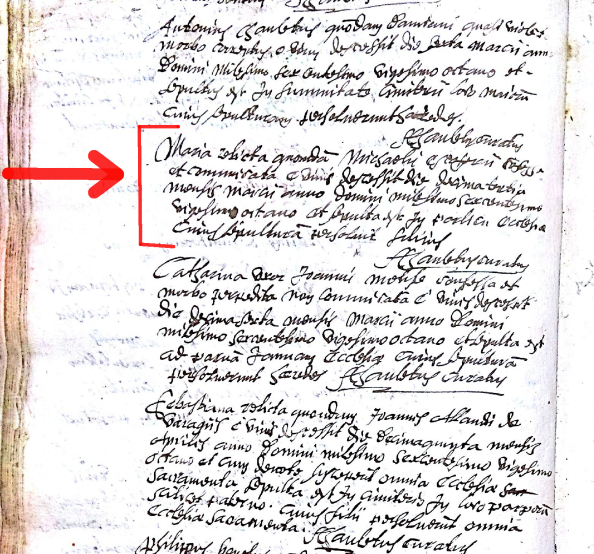 Antonius Chauletus quondam
morbo correptus e vivis decessit die sexta Marcii anno
Domini milesimo sexcentesimo vigesimo octavo et
sepultus est in summitate Cimiterii
Cuius sepulturam persolverunt
curatus
Maria relicta quondam Michaelis
et communicata e vivis decessit die decima tertia
mensis marcii anno domini milesimo sexcentesimo
vigesimo octavo et sepulta est in porticu Ecclesiæ
Cuius sepulturã persolvit filius
Chauletus curatus
Catharina uxor Joannis confessa et
morbo non communicata e vivis decessit
die decima sexta mensis Marcii anno Domini
milesimo sexcentesimo vigesimo octavo et sepulta est
ad parvã Januam Ecclesiæ Cuius sepulturã
persolverunt hæredes Chauletus Curatus
Sebastiana relicta quondam Joannis Allandi de
e vivis decessit die decimaquinta mensis
aprilis anno Domini milesimo sexcentesimo vigesimo
octavo et cum devote susceperit omnia Ecclesiæ
sacramenta sepulta est in Cimiterio in
scilicet paterno. Cuius filii persolverunt omnia
Ecclesiæ sacramenta
Chauletus curatus
Philippus